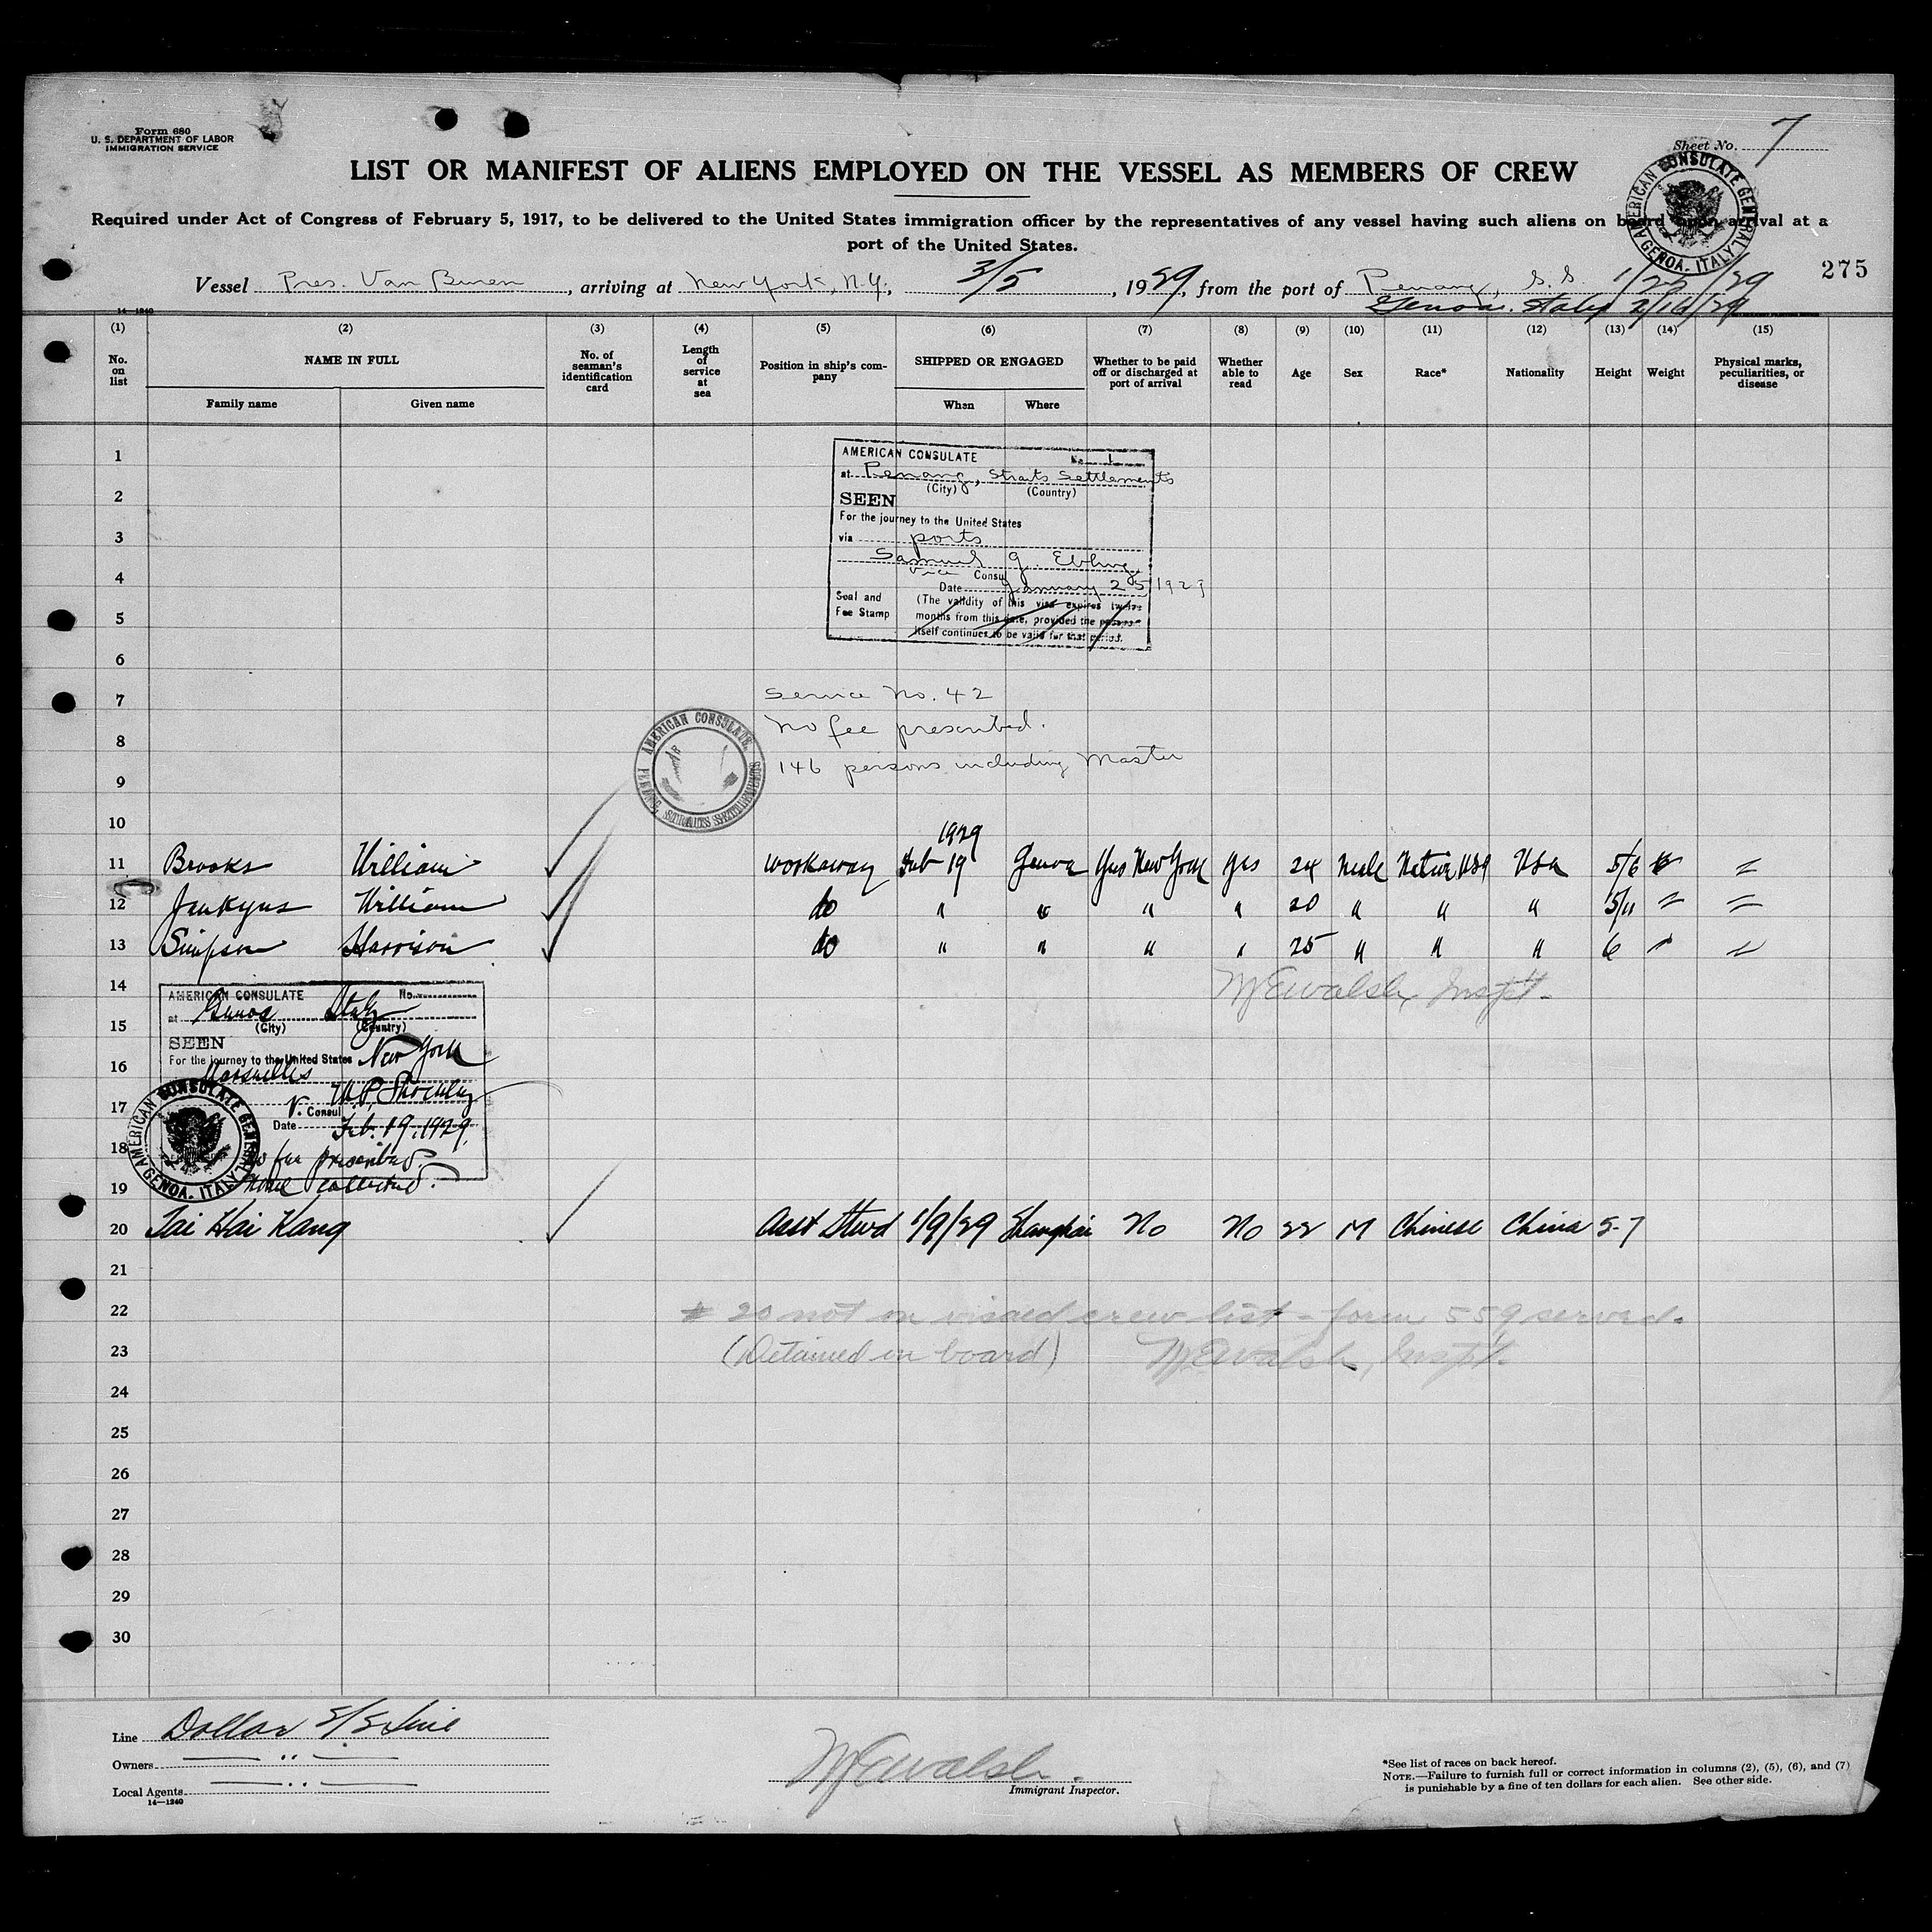 Form 680
U. S. DEPARTMENT OF LABOR
IMMIGRATION SERVICE
Sheet No. 7
LIST OR MANIFEST OF ALIENS EMPLOYED ON THE VESSEL AS MEMBERS OF CREW
Required under Act of Congress of February 5, 1917, to be delivered to the United States immigration officer by the representatives of any vessel having such aliens on board upon arrival at a
port of the United States.
AMERICAN CONSULATE GENERAL GENOA, ITALY
275
Vessel Pres. Van Buren, arriving at New York, N.Y., 3/5, 1929, from the port of Penang, S.S. 1/25/29
Genoa. Italy 2/19/29
14—1240
(1) (2) (3) (4) (5) (6) (7) (8) (9) (10) (11) (12) (13) (14) (15)
No. on list
NAME IN FULL
Family name Given name
No. of seaman's identification card
Length of service at sea
Position in ship's company
SHIPPED OR ENGAGED
When Where
Whether to be paid off or discharged at port of arrival
Whether able to read
Age
Sex
Race*
Nationality
Height
Weight
Physical marks, peculiarities, or disease
1
2
3
4
5
6
7
8
9
10
AMERICAN CONSULATE No. 1
at Penang, Straits Settlements
(City) (Country)
SEEN
For the journey to the United States
via ports
Samuel G. Ebling
Vice Consul
Date January 25 1929
Seal and Fee Stamp
(The validity of this visa expires twelve
months from this date, provided the
itself continues to be valid for that period.
Service No. 42
No fee prescribed.
146 persons including Master
AMERICAN CONSULATE, PENANG, STRAITS SETTLEMENTS
1929
11 Brooks William workaway Feb 19 Genoa Yes New York yes 24 Male Native USA USA 5/6 " =
12 Jenkyns William do " " " " 20 " " " 5/11 = =
13 Simpson Harrison do " " " " 25 " " " 6 " =
14
McEwalsh, Inspt.
AMERICAN CONSULATE No.
at Genoa Italy
(City) (Country)
15
SEEN
For the journey to the United States New York
16
Marseilles
17
V. Consul
Date Feb. 19. 1929.
18
No fee prescribed
19
None collected.
AMERICAN CONSULATE GENERAL GENOA, ITALY
20 Tai Hai Kang Asst Stwd 1/9/29 Shanghai No No 22 M Chinese China 5-7
21
22 # 20 not on visaed crew list - form 559 served.
23 (Detained on board) McEwalsh, Inspt.
24
25
26
27
28
29
30
Line Dollar S/S Line
Owners — " —
Local Agents — " —
14—1240
McEwalsh.
Immigrant Inspector.
*See list of races on back hereof.
NOTE.—Failure to furnish full or correct information in columns (2), (5), (6), and (7)
is punishable by a fine of ten dollars for each alien. See other side.